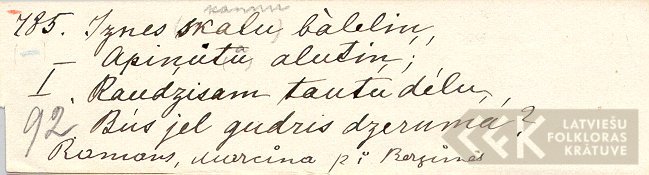 kannu
785. Iznes skalu, bāleliņ,
— Apiņūtu (a) alutiņ;
I. Raudzisam tautu dēlu,
92 Būs jel gudris dzerumā?
Romans, Marcina p. i Berzinés
LATVIEŠU
FOLKLORAS
KRĀTUVE